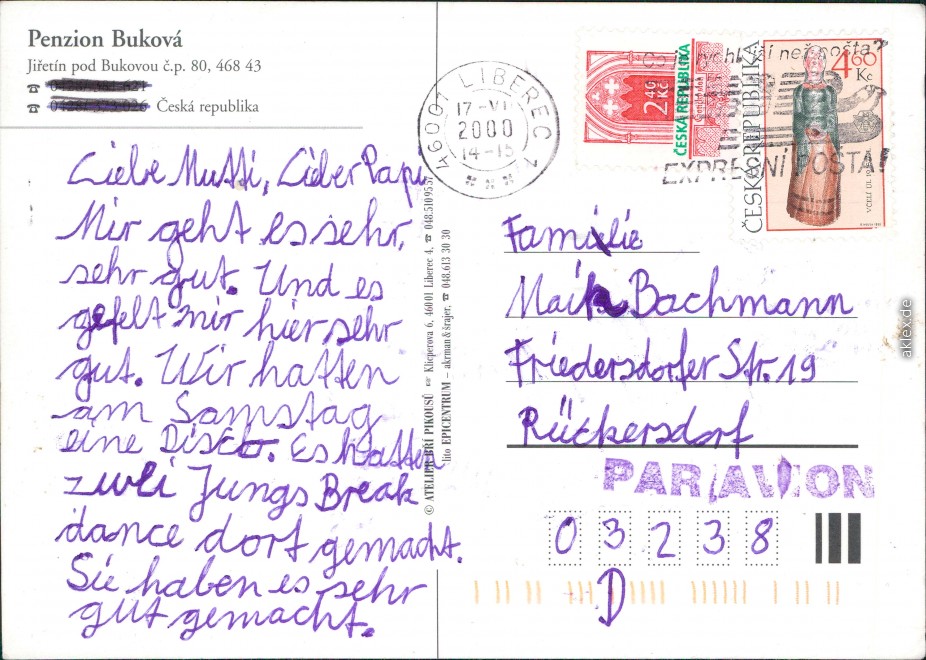 Penzion Buková
Jiřetín pod Bukovou č.p. 80, 468 43
Česká republika
Liebe Mutti, Lieber Papi
Mir geht es sehr,
sehr gut. Und es
gefelt mir hier sehr
gut. Wir hatten
am Samstag
eine Disco. Es hatten
zwei Jungs Break
dance dort gemacht.
Sie haben es sehr
gut gemacht.
© ATELIER JIŘÍ PIKOUSŮ Klicperova 6, 46001 Liberec 4, 048.5109557
lito EPICENTRUM – akrman & šrajer, 048.613 30 30
46001 LIBEREC 1
17.-VI.
2000
14-15
2.40
Kč
ČESKÁ REPUBLIKA
Co je rychlejší než pošta?
EXPRESNÍ POŠTA!
4.60
Kč
ČESKÁ REPUBLIKA
Familie
Maik Bachmann
Friedersdorfer Str. 19
Rückersdorf
PAR AVION
03238
D
aklex.de